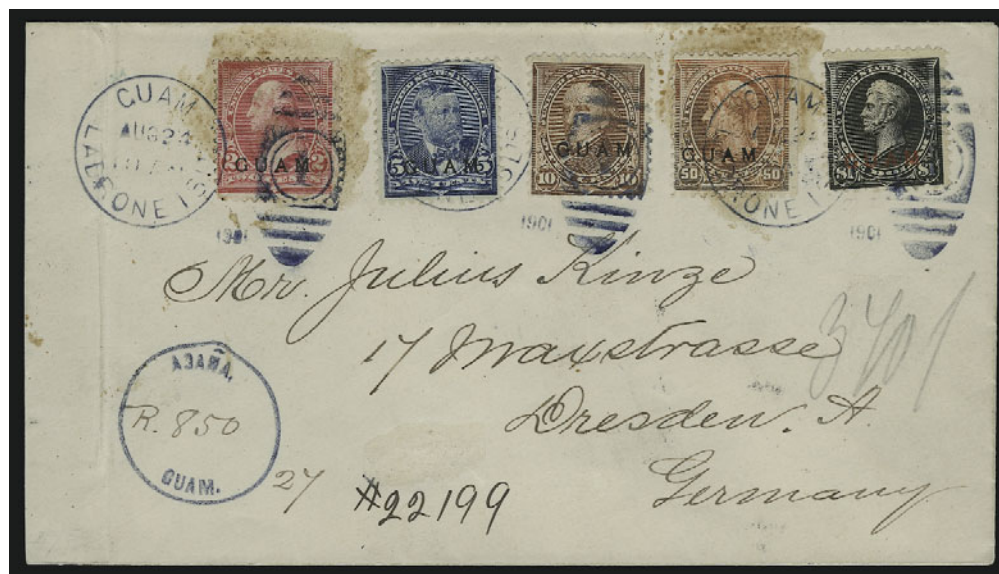 GUAM
AUG 24
LADRONE IS.
2 GUAM 2
5 GUAM 5
10 GUAM 10
50 GUAM 50
$1
1901
1901
1901
Mr. Julius Kinze
17 Maxstrasse
Dresden. A.
Germany
3401
AGAÑA.
R. 850
GUAM.
27
#22199